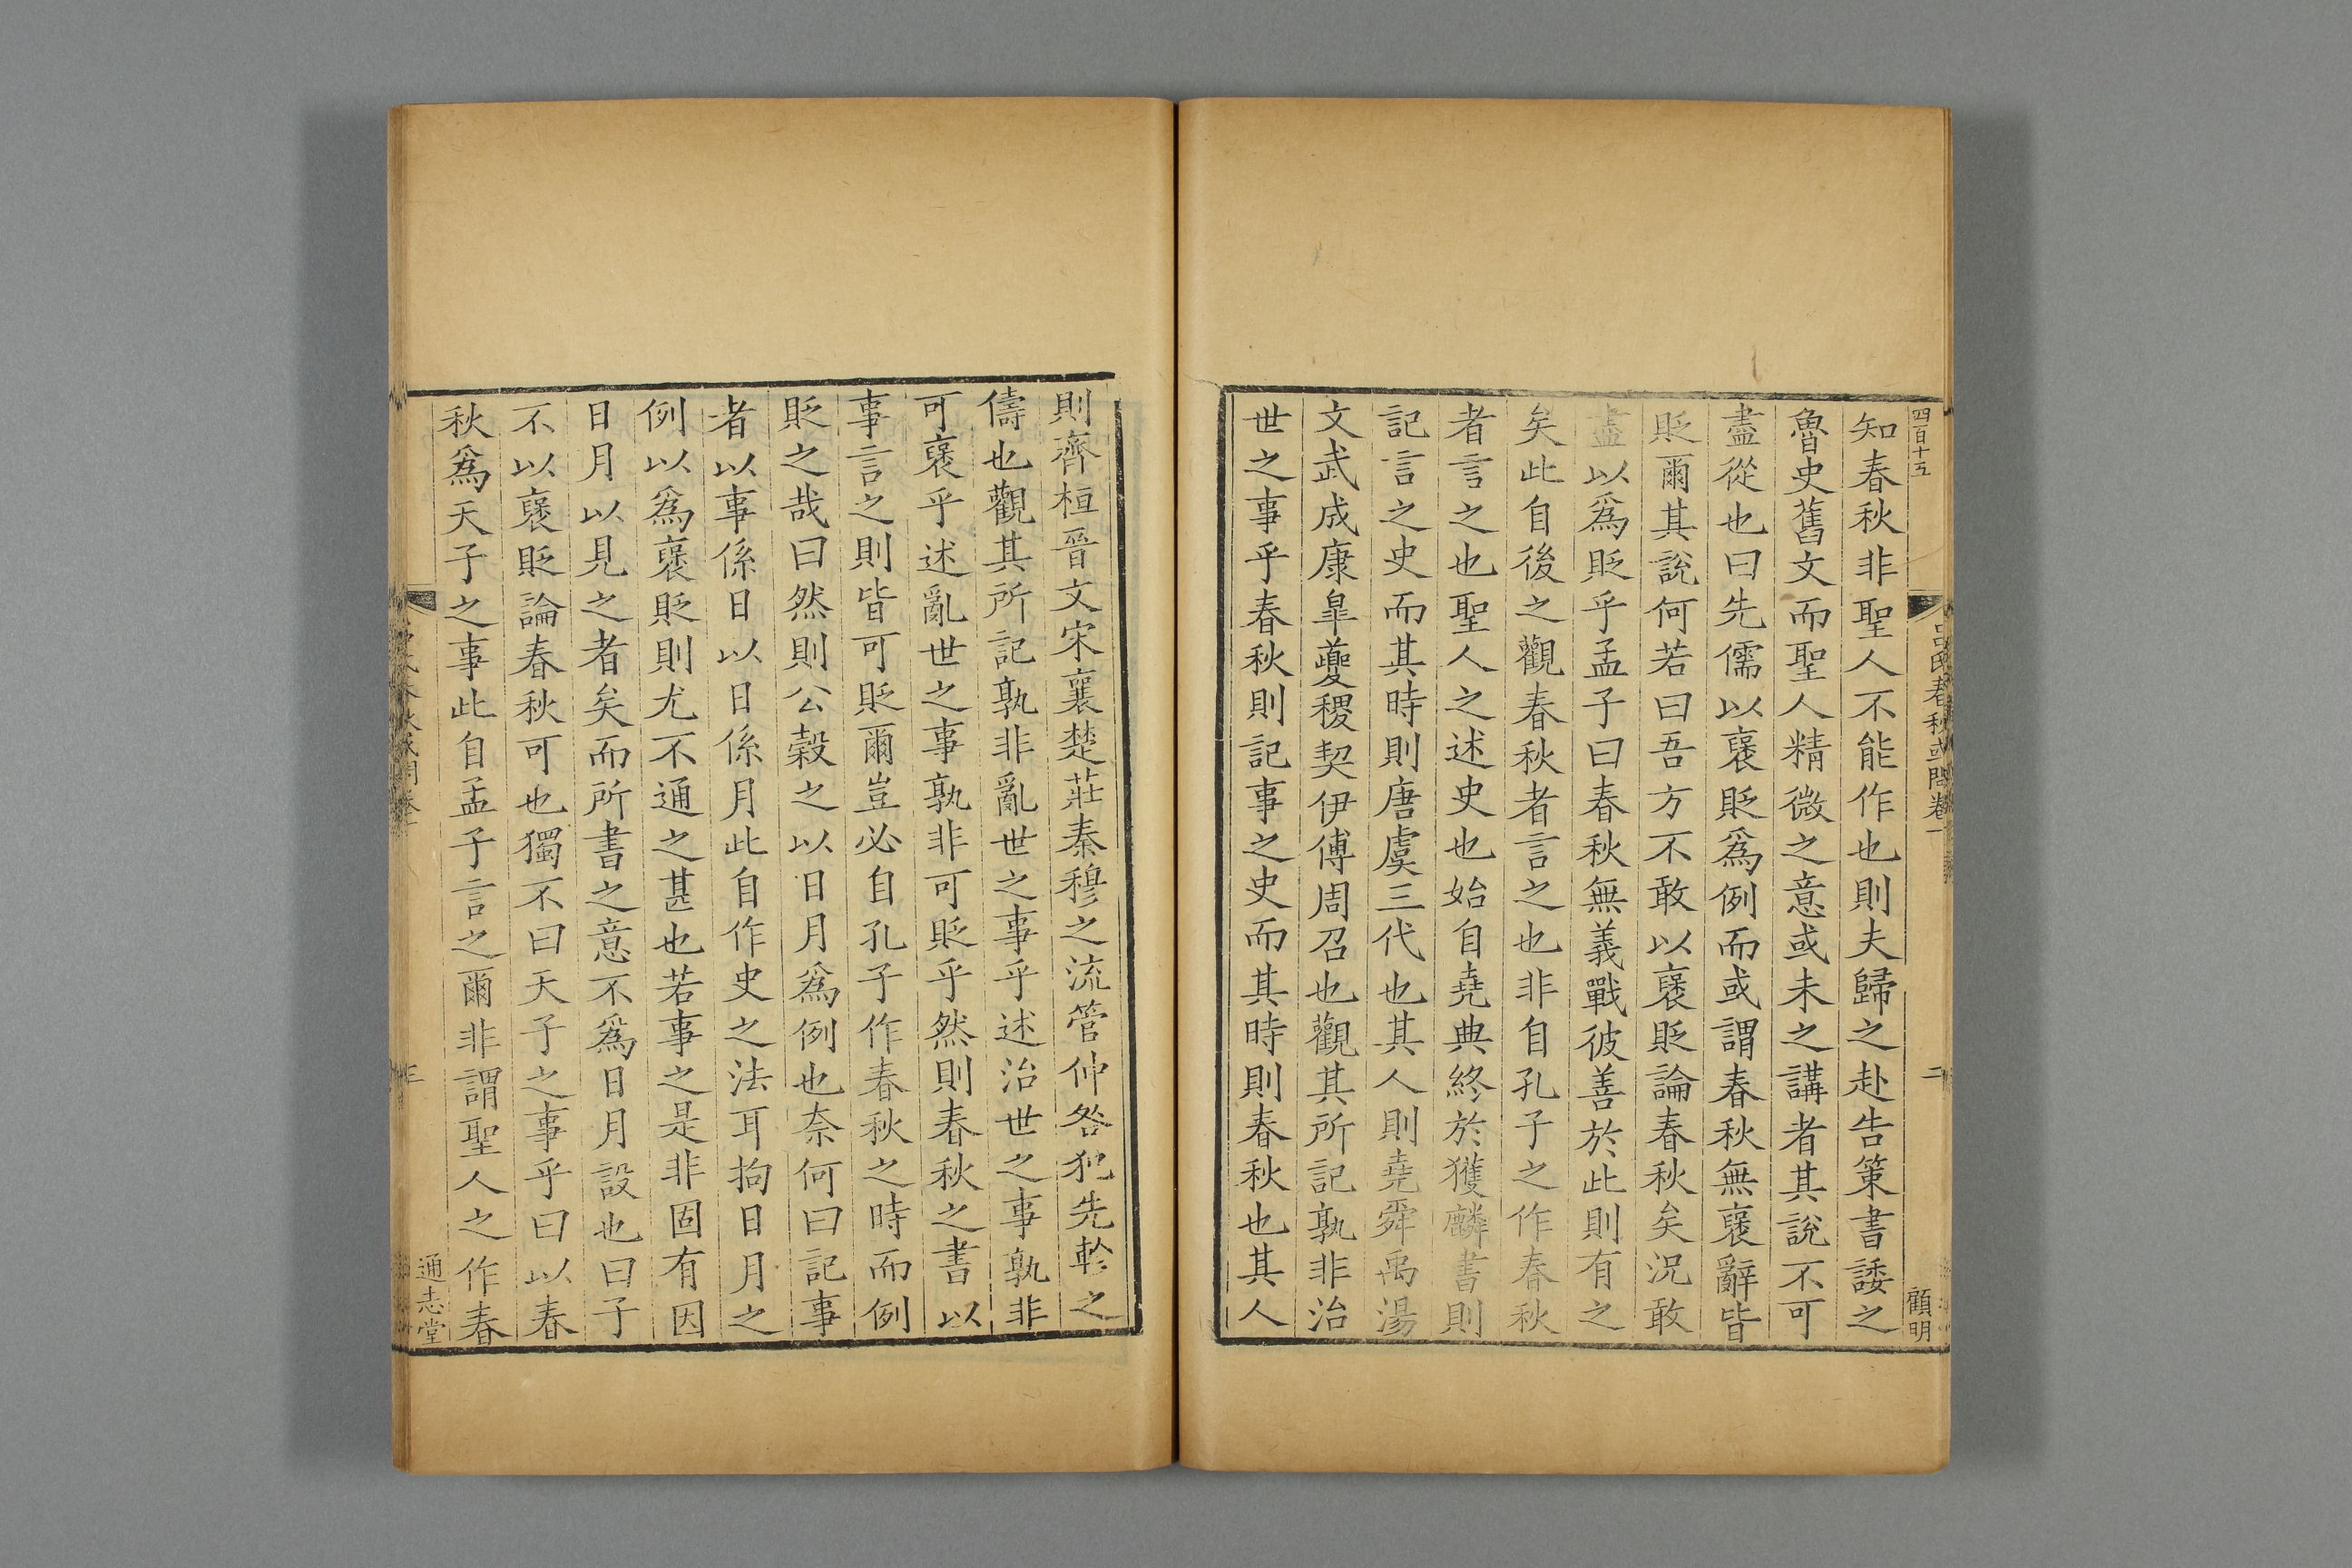 四百十五
呂氏春秋或問卷一
二
顧明
知春秋非聖人不能作也則夫歸之赴告策書諉之
魯史舊文而聖人精微之意或未之講者其說不可
盡從也曰先儒以襃貶爲例而或謂春秋無襃辭皆
貶爾其說何若曰吾方不敢以襃貶論春秋矣況敢
盡以爲貶乎孟子曰春秋無義戰彼善於此則有之
矣此自後之觀春秋者言之也非自孔子之作春秋
者言之也聖人之述史也始自堯典終於獲麟書則
記言之史而其時則唐虞三代也其人則堯舜禹湯
文武成康臯夔稷契伊傅周召也觀其所記孰非治
世之事乎春秋則記事之史而其時則春秋也其人
則齊桓晉文宋襄楚莊秦穆之流管仲咎犯先軫之
儔也觀其所記孰非亂世之事乎述治世之事孰非
可襃乎述亂世之事孰非可貶乎然則春秋之書以
事言之則皆可貶爾豈必自孔子作春秋之時而例
貶之哉曰然則公穀之以日月爲例也柰何曰記事
者以事係日以日係月此自作史之法耳拘日月之
例以爲襃貶則尤不通之甚也若事之是非固有因
日月以見之者矣而所書之意不爲日月設也曰子
不以襃貶論春秋可也獨不曰天子之事乎曰以春
秋爲天子之事此自孟子言之爾非謂聖人之作春
三
通志堂